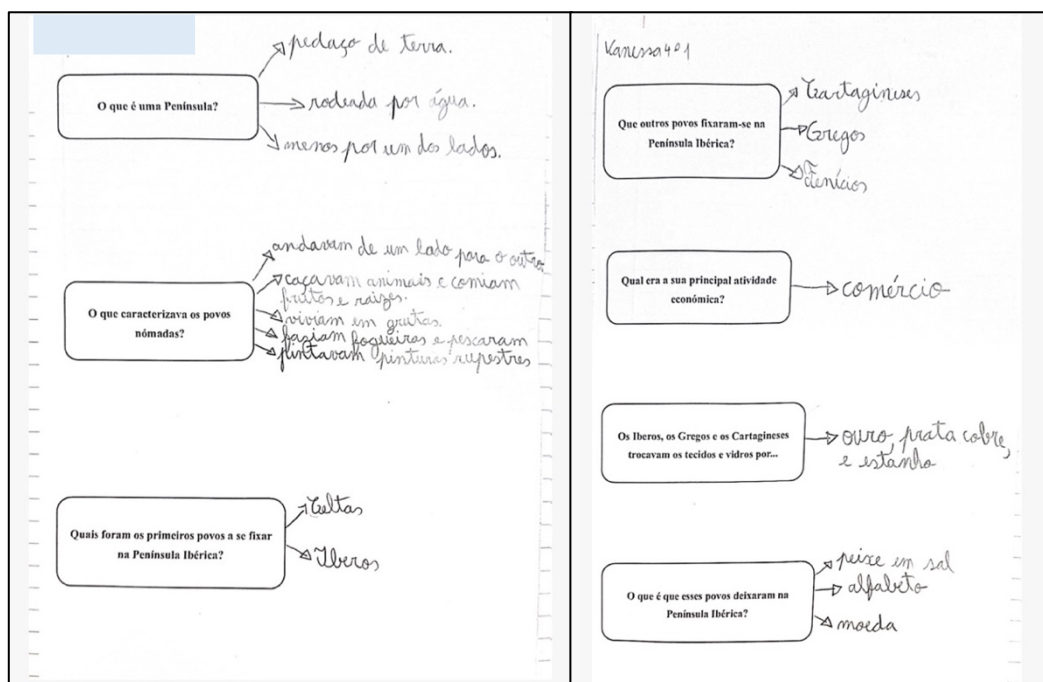 O que é uma Península?
pedaço de terra.
rodeada por água.
menos por um dos lados.
O que caracterizava os povos
nómadas?
andavam de um lado para o outro
caçavam animais e comiam
frutos e raizes.
viviam em grutas.
faziam fogueiras e pescaram
pintavam pinturas rupestres
Quais foram os primeiros povos a se fixar
na Península Ibérica?
Celtas
Iberos
Vanessa 4º1
Que outros povos fixaram-se na
Península Ibérica?
Cartagineses
Gregos
Fenícios
Qual era a sua principal atividade
económica?
comércio
Os Iberos, os Gregos e os Cartagineses
trocavam os tecidos e vidros por...
ouro, prata cobre,
e estanho
O que é que esses povos deixaram na
Península Ibérica?
peixe em sal
alfabeto
moeda